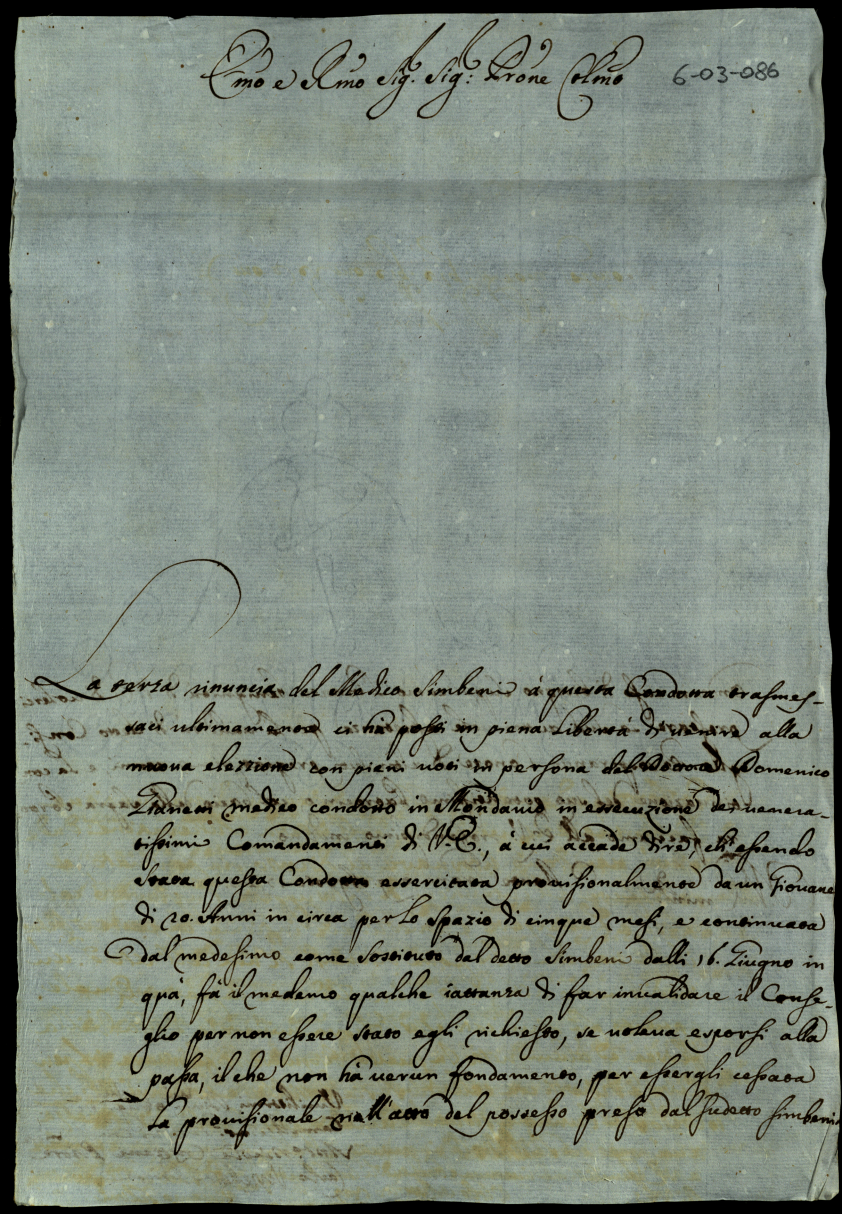 Emo e Rmo Sig. Sig: Prone Colmo
6-03-086
La terza rinuncia del Medico Simbeni à questa Condotta trasmes-
saci ultimamente ci hà posti in piena Libertà di venire alla
nuova elezzione con pieni voti in persona del Dottore Domenico
medico condotto in Mondavio in essecuzione de venera-
tissimi Comandamenti di V. E., à cui accade dire, ch'essendo
stata questa Condotta essercitata provisionalmente da un Giovane
di 20. Anni in circa per lo spazio di cinque mesi, e continuata
dal medesimo come sostituto dal detto Simbeni dalli 16. Giugno in
quà, fà il medemo qualche iattanza di far invalidare il Conse-
glio per non essere stato egli richiesto, se voleva esporsi alla
passa, il che non hà verun fondamento, per essergli cessata
la provisionale nell'atto del possesso preso dal sudetto Simbeni